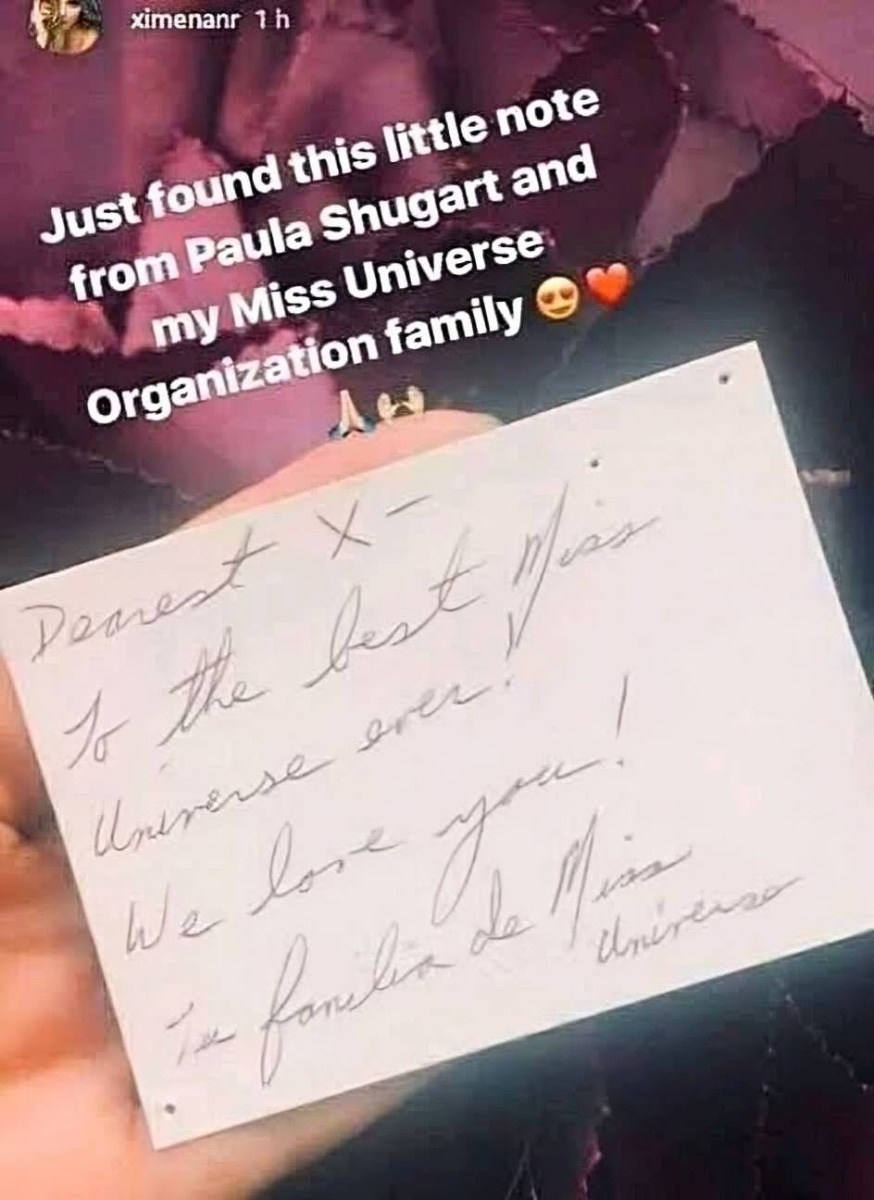 ximenanr 1 h
Just found this little note
from Paula Shugart and
my Miss Universe
Organization family 😍❤️
🙏🙌
Dearest X-
To the best Miss
Universe ever!
We love you!
Tu familia de Miss
Universe